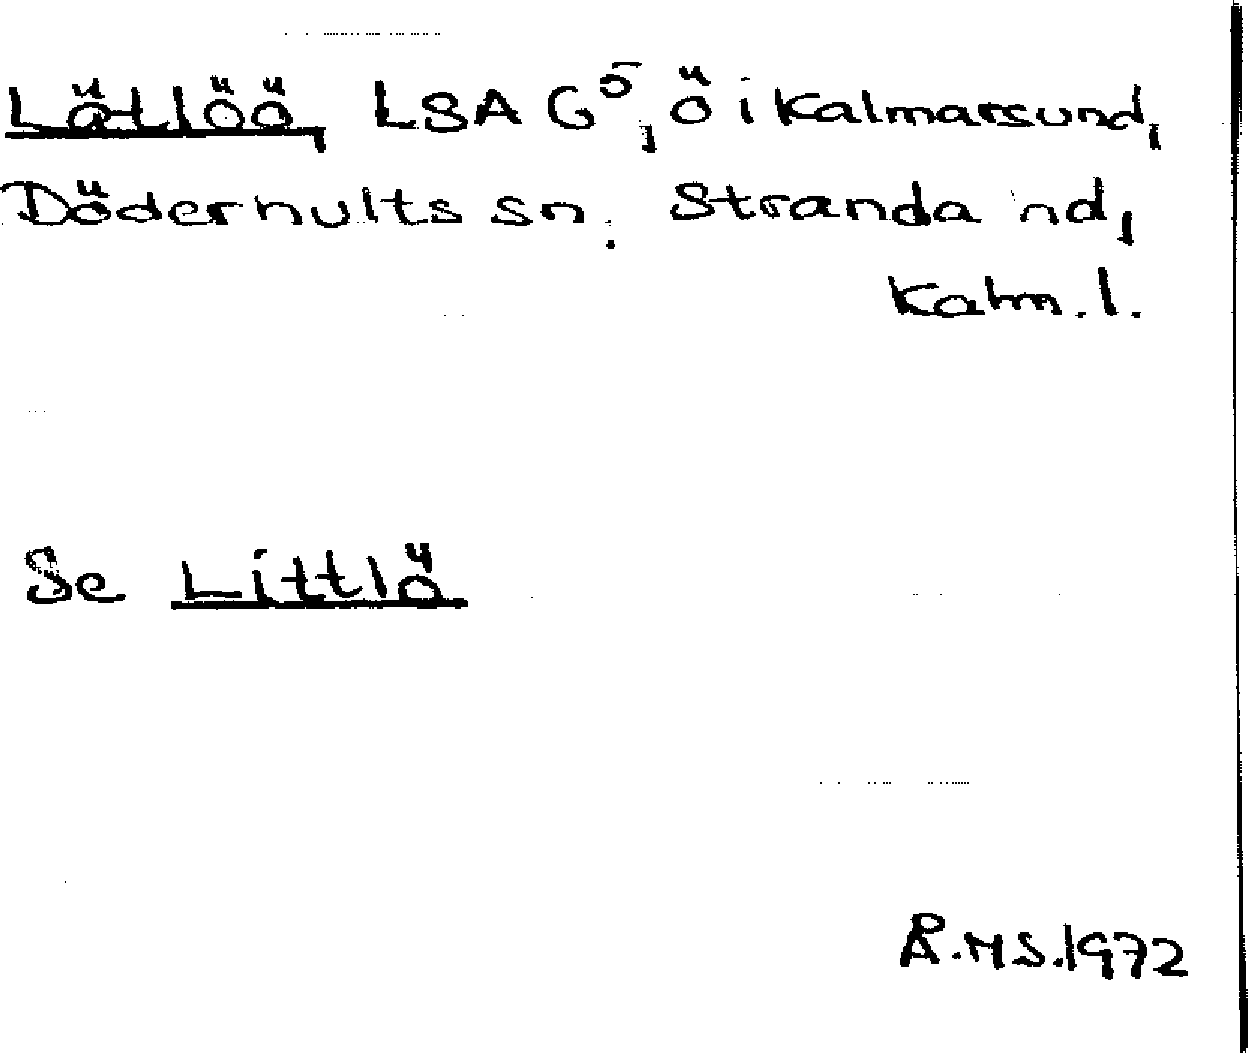 Lätlöö, LSA G⁵, ö i Kalmarsund,
Döderhults sn. Stranda hd,
Kalm. l.
Se Littlö
Å.M.S. 1972